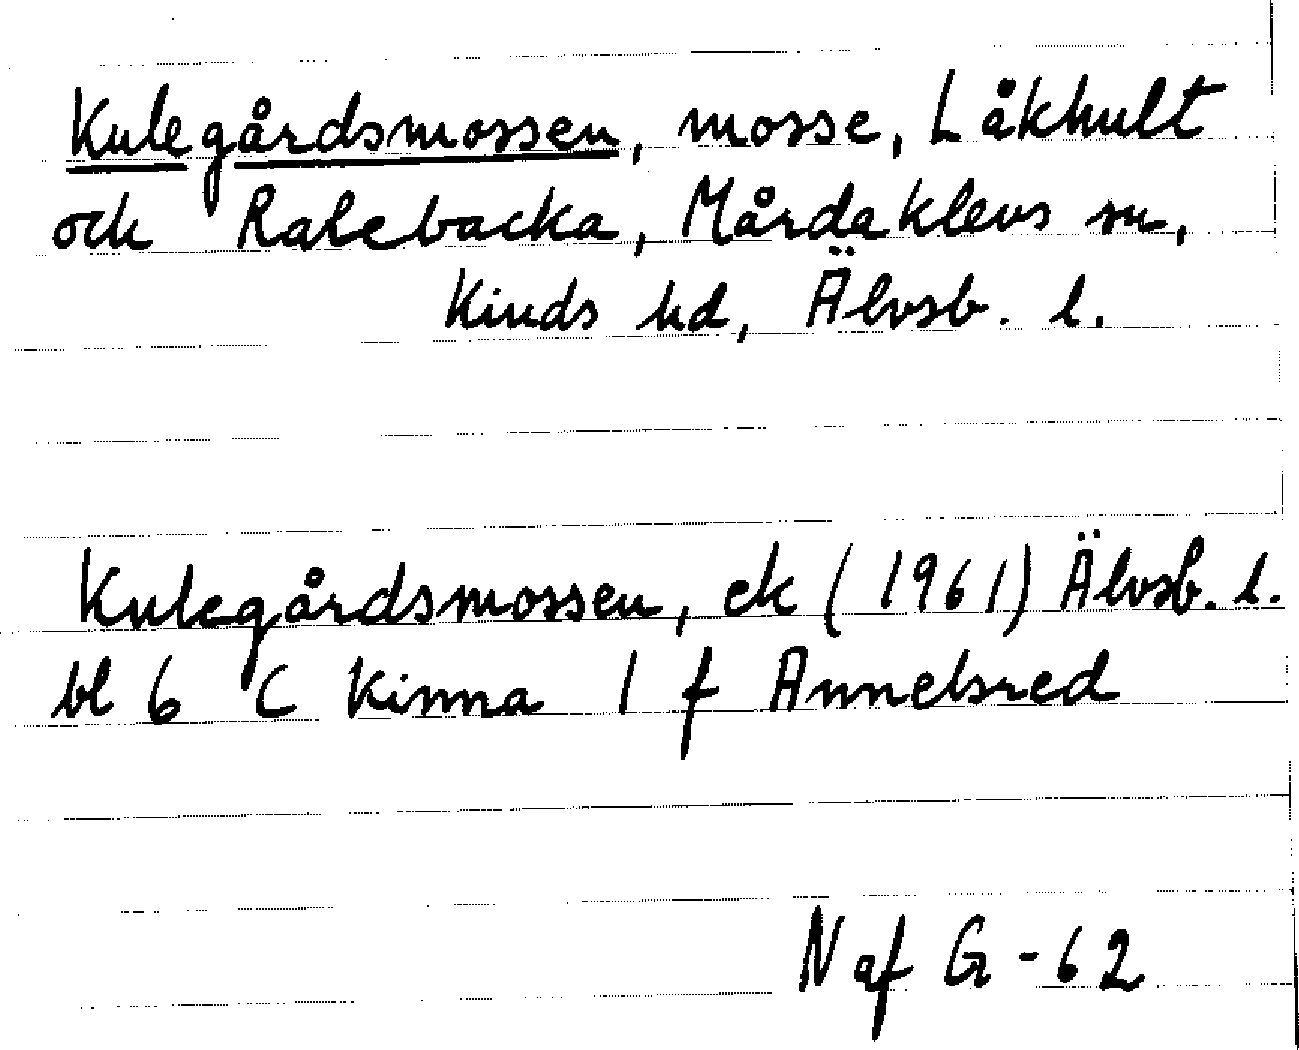 Kulegårdsmossen, mosse, Låkhult
och Ralebacka, Mårdaklevs sn,
Kinds hd, Älvsb. l.
Kulegårdsmossen, ek (1961) Älvsb. l.
bl 6 C Kinna 1 f Annelsred
N af G - 62